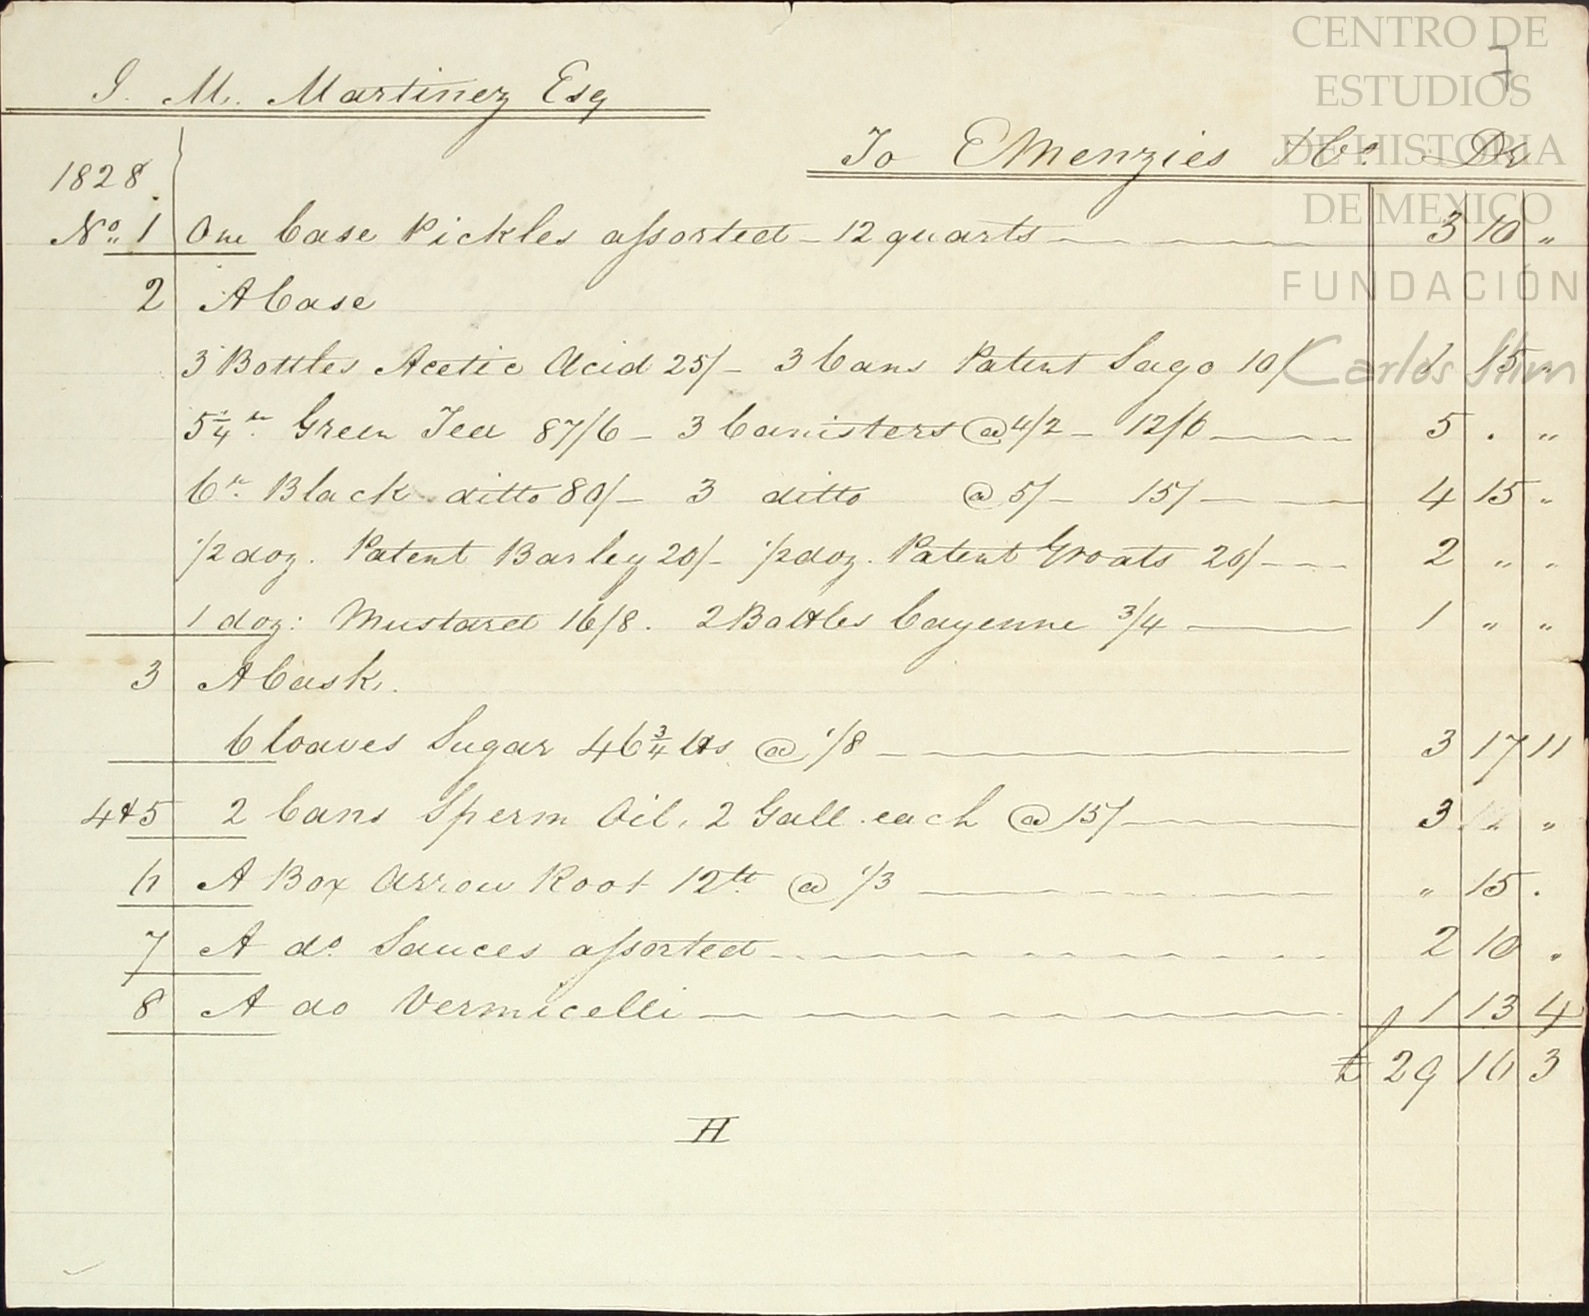 CENTRO DE
ESTUDIOS
DE HISTORIA
DE MEXICO
FUNDACIÓN
Carlos Slim
7
J. M. Martinez Esq
To E Menzies & Co. Dr
1828
No. 1 One Case Pickles assorted - 12 quarts 3 10 "
2 A Case
3 Bottles Acetic Acid 25/- 3 Cans Patent Sago 10/ 1 15 "
5 1/4 lb. Green Tea 87/6 - 3 Canisters @ 4/2 - 12/6 5 . "
6 lb. Black ditto 80/- 3 ditto @ 5/- 15/- 4 15 "
1/2 doz. Patent Barley 20/- 1/2 doz. Patent Groats 20/- 2 " "
1 doz: Mustard 16/8. 2 Bottles Cayenne 3/4 1 " "
3 A Cask.
6 loaves Sugar 46 3/4 lbs @ 1/8 3 17 11
4 & 5 2 Cans Sperm Oil, 2 Gall. each @ 15/ 3 "
6 A Box Arrow Root 12 lb @ 1/3 " 15 .
7 A do. Sauces assorted 2 10 "
8 A do Vermicelli 1 13 4
£ 29 16 3
H